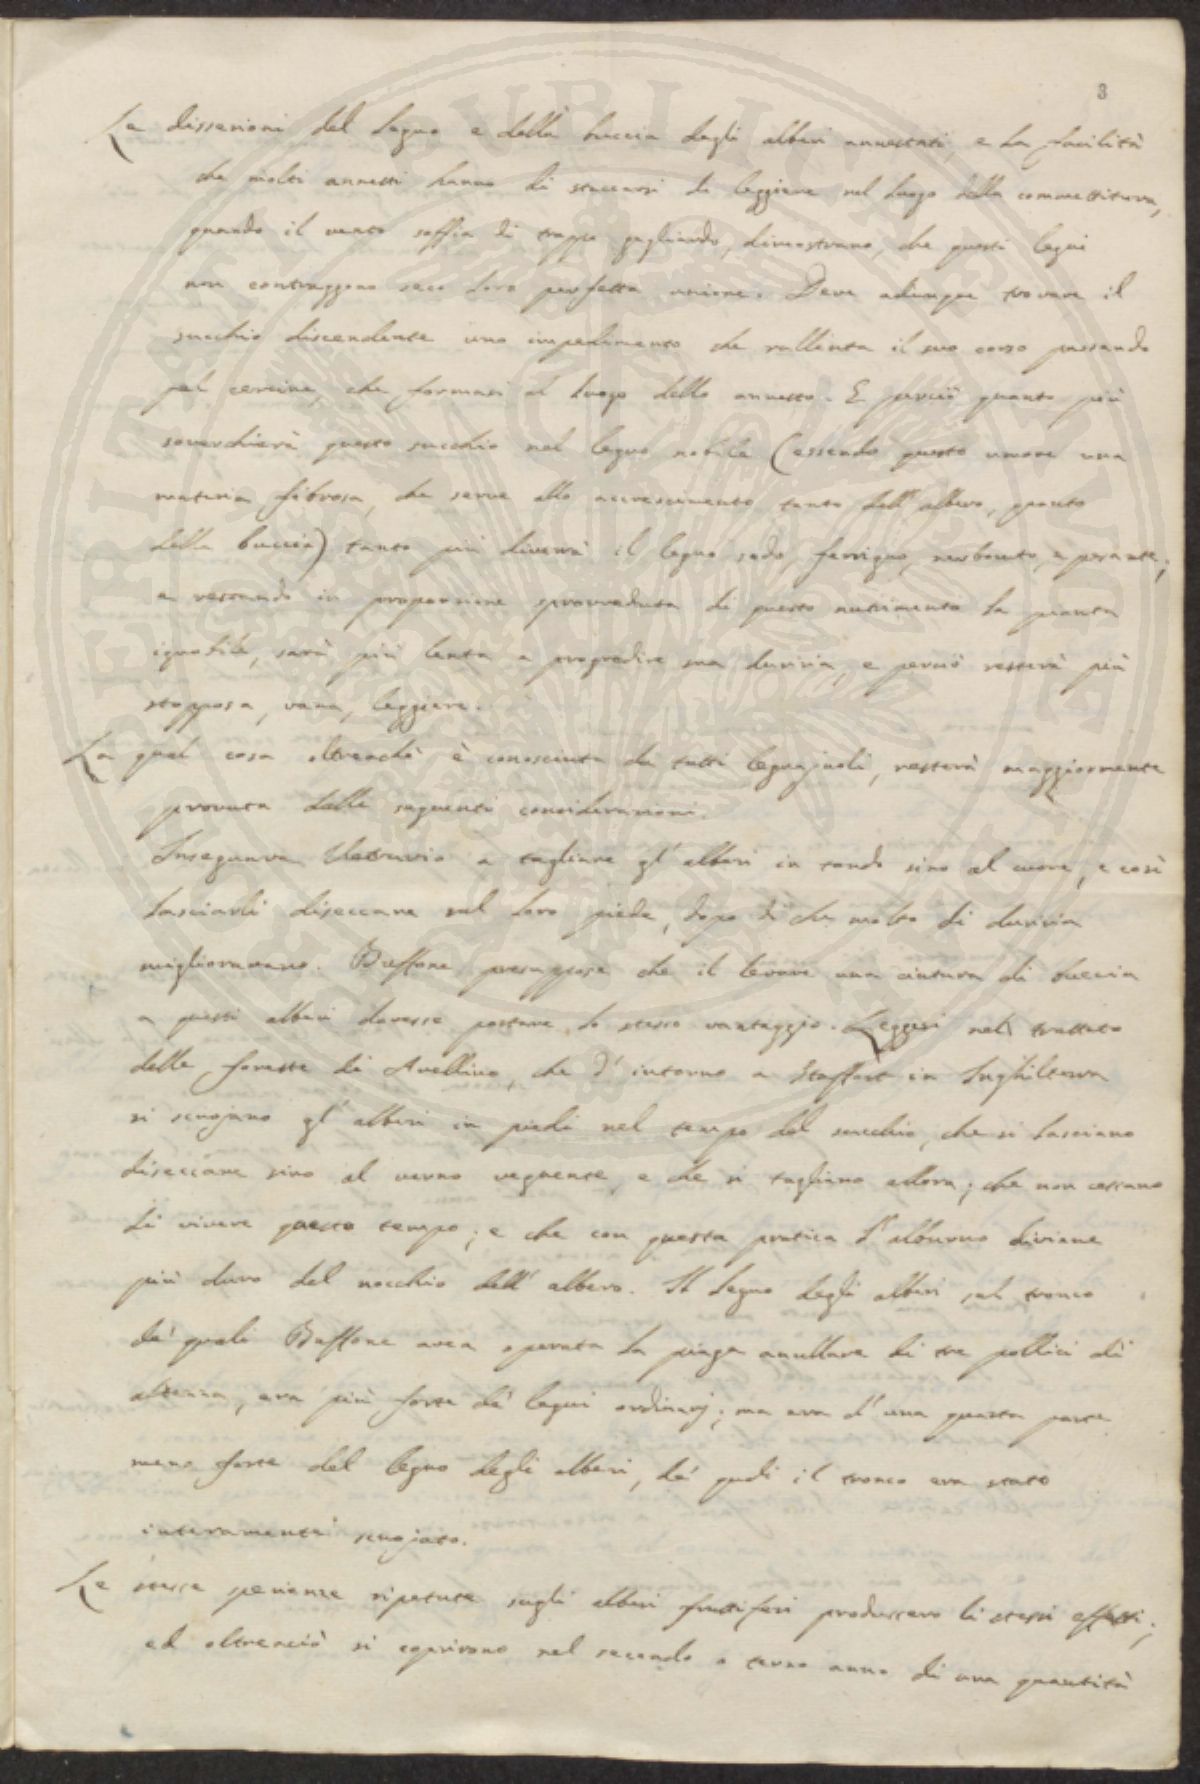 3
Le dissezioni del legno e della buccia degli alberi annestati, e la facilità
che molti annesti hanno di staccarsi di leggiere nel luogo della commettitura,
quando il vento soffia di troppo gagliardo, dimostrano, che questi legni
non contraggono seco loro perfetta unione. Deve adunque trovare il
succhio discendente uno impedimento che rallenta il suo corso passando
pel cercine, che formasi al luogo dello annesto. E perciò quanto più
soverchierà questo succhio nel legno nobile (essendo questo umore una
materia fibrosa, che serve allo accrescimento tanto dell'albero, quanto
della buccia) tanto più diverrà il legno sodo, ferrigno, nerboruto, e pesante;
e restando in proporzione sprovveduta di questo nutrimento la pianta
ignobile, sarà più lenta a progredire sua durizia, e perciò resterà più
stopposa, vana, leggiere.
La qual cosa oltreachè è conosciuta da tutti legnajuoli, resterà maggiormente
provata dalle seguenti considerazioni.
Insegnava Vetruvio a tagliare gl'alberi in tondo sino al cuore, e così
lasciarli diseccare sul loro piede, dopo di che molto di durizia
miglioravano. Buffone presuppose che il levare una cintura di buccia
a questi alberi dovesse portare lo stesso vantaggio. Leggesi nel trattato
delle foreste di Avellino, che d'intorno a Staffort in Inghilterra
si scuojano gl'alberi in piedi nel tempo del succhio, che si lasciano
diseccare sino al verno vegnente, e che si tagliano allora; che non cessano
di vivere questo tempo; e che con questa pratica l'alburno diviene
più duro del nocchio dell'albero. Il legno degli alberi sul tronco
de' quali Buffone avea operata la piaga anullare di tre pollici di
altezza, era più forte de' legni ordinarj; ma era d'una quarta parte
meno forte del legno degli alberi, de' quali il tronco era stato
interamente scuojato.
Le stesse sperienze ripetute sugli alberi fruttiferi produssero li stessi effetti;
ed oltreaciò si coprirono nel secondo o terzo anno di una quantità